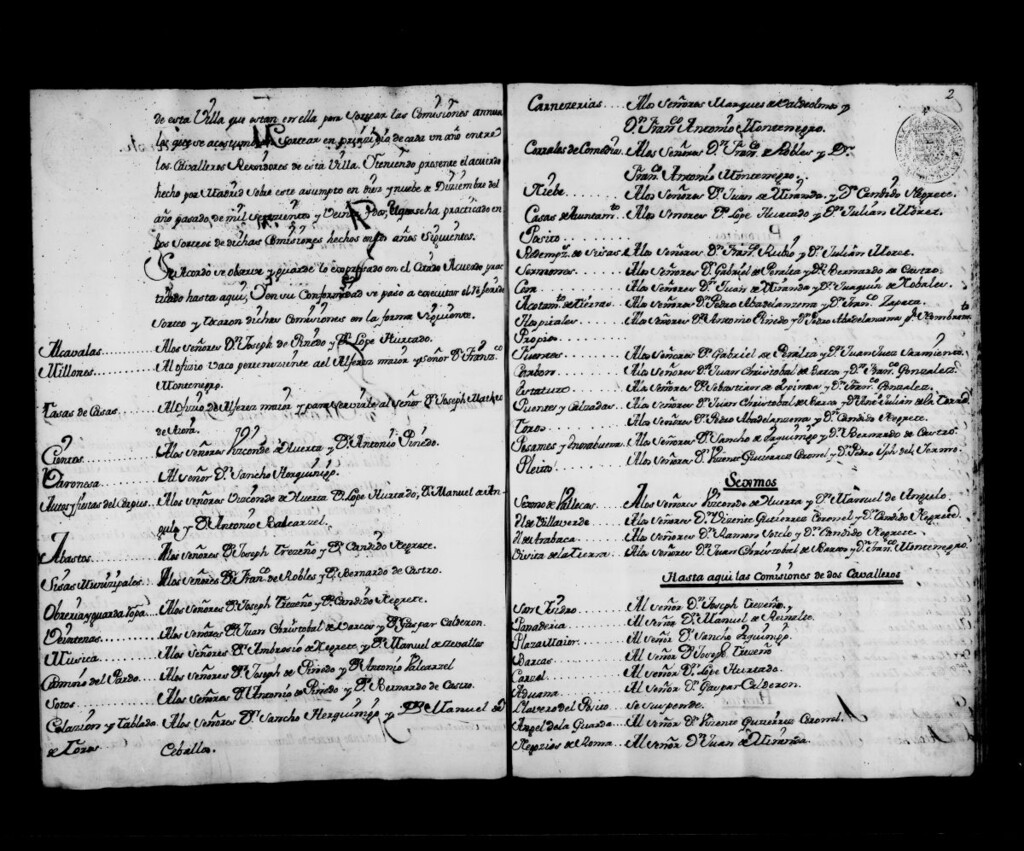 de esta Villa que estan en ella para sortear las Comisiones annua
les que se acostumbran sortear en principio de cada un año entre
los Cavalleros Rexidores de esta Villa. Y teniendo presente el acuerdo
hecho por Madrid sobre este assumpto en diez y nuebe de Diziembre del
año pasado, de mil setezientos y Veinte y dos, que se ha practicado en
los sorteos de dichas Comisiones hechos en los años siguientes.
Se Acordó se observe y guarde lo expresado en el Citado Acuerdo prac
ticado hasta aqui, Y en su Conformidad se pasó a executar el
sorteo y tocaron dichas Comisiones en la forma siguiente.
Alcavalas........ A los Señores Dn. Joseph de Pinedo y Dn. Lope Hurtado.
Millones......... Al ofizio Vaco perteneciente al Alferez maior y señor Dn. Franzco
Montenegro.
Casas de Casas..... Al ofizio de Alferez maior y para servirle al señor Dn. Joseph
de
Cientos......... A los Señores Vizconde de Huerta y Dn. Antonio Pinedo.
......... Al Señor Dn. Sancho
Autos y fiestas del Corpus.. A los Señores Vizconde de Huerta Dn. Lope Hurtado, Dn. Manuel de An-
gulo y Dn. Antonio Balcarzel.
Abastos......... A los Señores Dn. Joseph Treveño y Dn. Candido Negrete.
Sisas Municipales.. A los Señores Dn. Franco de Robles y Dn. Bernardo de Castro.
Obreria y guarda ropa... A los Señores Dn. Joseph Treveño y Dn. Candido Negrete.
Quintenas........ A los Señores Dn. Juan Christobal de Barcos y Dn. Gaspar Calderon.
Musica......... A los Señores Dn. Ambrosio de Negrete y Dn. Manuel de Zevallos
Camino del Pardo... A los Señores Dn. Joseph de Pinedo y Dn. Antonio Valcarzel
Sotos......... A los Señores Dn. Antonio de Pinedo y Dn. Bernardo de Castro.
Colazion y Tablado A los Señores Dn. Sancho y Dn. Manuel de
de Toros Ceballos.
2
Carnezerias.... A los Señores Marques de Valdeolmos y
Dn. Franco Antonio Montenegro.
Corrales de Comedia. A los Señores Dn. Franco de Robles y Dn.
Franco Antonio Montenegro.
Niebe......... A los Señores Dn. Juan de Miranda, y Dn. Candido Negrete.
Casas de Aiuntamto... A los Señores Dn. Lope Hurtado y Dn. Julián Moret.
Posito.........
Redempzn. de sisas A los Señores Dn. Franco Rubio y Dn. Julián Moret.
Sermones....... A los Señores Dn. Gabriel de Peralta y Dn. Bernardo de Castro.
Cera......... A los Señores Dn. Juan de Miranda y Dn. Joaquin de Nobales.
Acotamto de tierras.. A los Señores Dn. Pedro Abadelanzena y Dn. Franco Zapata.
Hospitales....... A los Señores Dn. Antonio Pinedo y Dn. Pedro Abadelanzena
Propios.........
Fuentes....... A los Señores Dn. Gabriel de Peralta y Dn. Juan Sarmiento.
Carbon....... A los Señores Dn. Juan Christobal de Barca y Dn. Franco Gonzalez.
Estatuto....... A los Señores Dn. Sebastian de Espinosa y Dn. Franco Gonzalez.
Puentes y Calzadas... A los Señores Dn. Juan Christobal de Barca y Dn. Julián de la
Toros......... A los Señores Dn. Pedro Abadelanzena y Dn. Candido Negrete.
Pesames y Enorabuena. A los Señores Dn. Sancho y Dn. Bernardo de Castro.
Pleito......... A los Señores Dn. Vizente Gutierrez Coronel y Dn. Pedro Iph. del Yermo.
Sexmos
Sexmo de Vallecas.... A los Señores Vizconde de Huerta y Dn. Manuel de Angulo.
Yd. de Villaverde...... A los Señores Dn. Vizente Gutierrez Coronel y Dn. Candido Negrete.
Yd. de Arabaca...... A los Señores Dn. Ramon Sotelo y Dn. Candido Negrete.
Visita de la Tierra... A los Señores Dn. Juan Christobal de Barcos y Dn. Franco Montenegro.
Hasta aqui las Comisiones de dos Cavalleros
San Isidro....... Al Señor Dn. Joseph Treveño.
Panaderia....... Al Señor Dn. Manuel de Reinalte.
Plaza Maior...... Al Señor Dn. Sancho
Barcas......... Al Señor Dn. Joseph Treveño
Corral......... Al Señor Dn. Lope Hurtado.
Aduana......... Al Señor Dn. Gaspar Calderon.
Llavero del Posito... Se suspende.
Angel de la Guarda... Al Señor Dn. Vizente Gutierrez Coronel.
Negozios de Roma... Al Señor Dn. Juan de Miranda.